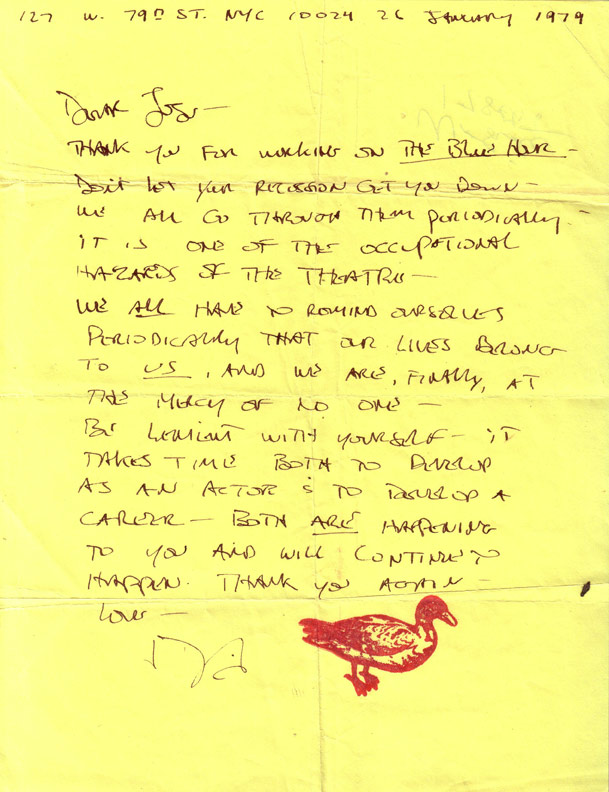 127 W. 79TH ST. NYC 10024 26 JANUARY 1979
DEAR
THANK YOU FOR WORKING ON THE BLUE HOUR —
DON'T LET YOUR RECESSION GET YOU DOWN —
WE ALL GO THROUGH THEM PERIODICALLY —
IT IS ONE OF THE OCCUPATIONAL
HAZARDS OF THE THEATRE —
WE ALL HAVE TO REMIND OURSELVES
PERIODICALLY THAT OUR LIVES BELONG
TO US, AND WE ARE, FINALLY, AT
THE MERCY OF NO ONE —
BE LENIENT WITH YOURSELF — IT
TAKES TIME BOTH TO DEVELOP
AS AN ACTOR & TO DEVELOP A
CAREER — BOTH ARE HAPPENING
TO YOU AND WILL CONTINUE TO
HAPPEN. THANK YOU AGAIN —
LOVE —